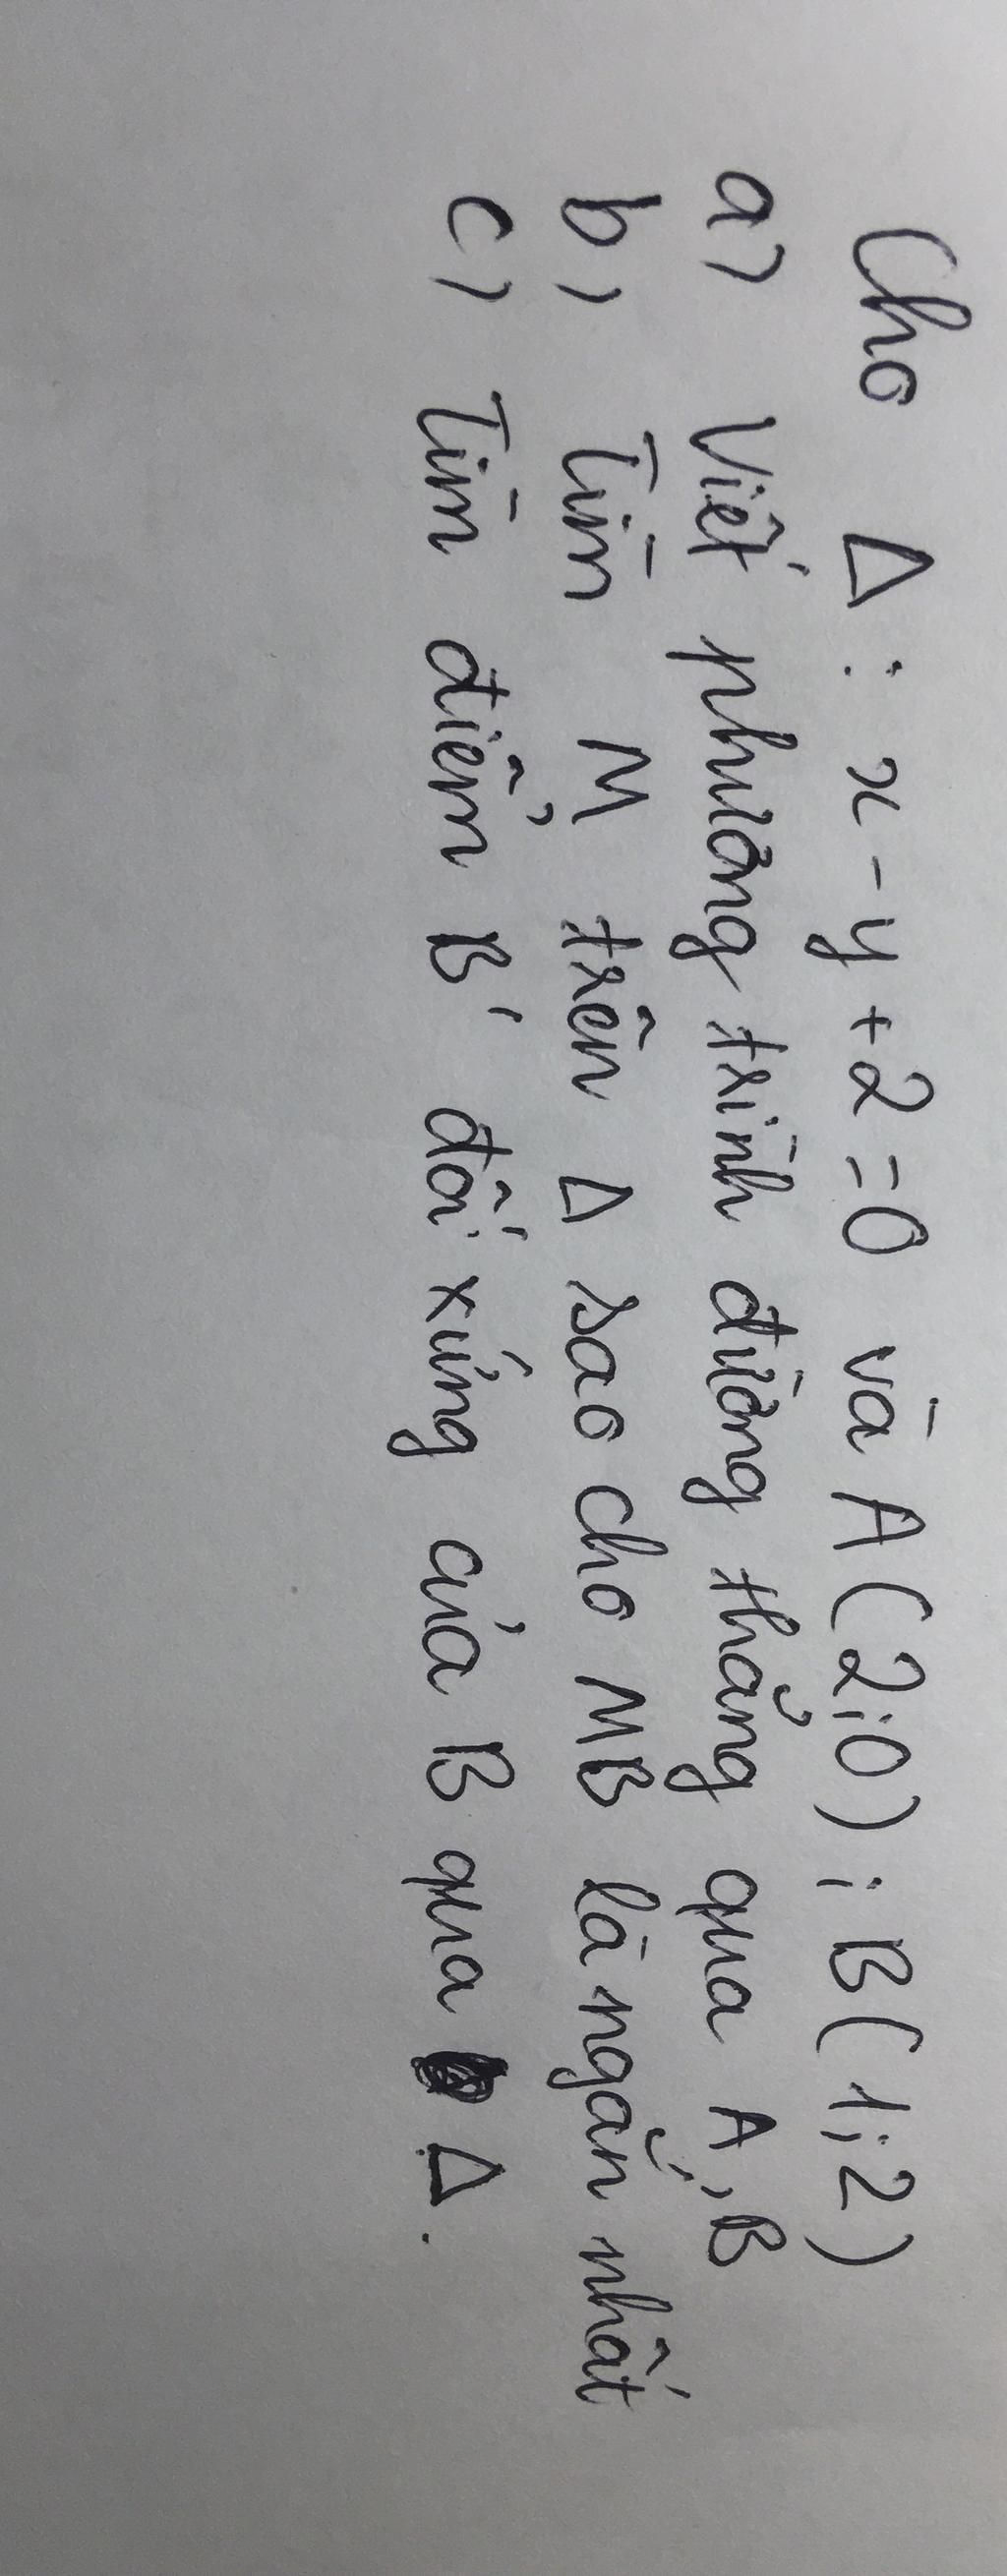 Cho Δ : x - y + 2 = 0 và A (2;0) ; B (1;2)
a) Viết phương trình đường thẳng qua A, B
b) Tìm M trên Δ sao cho MB là ngắn nhất
c) Tìm điểm B' đối xứng của B qua Δ.